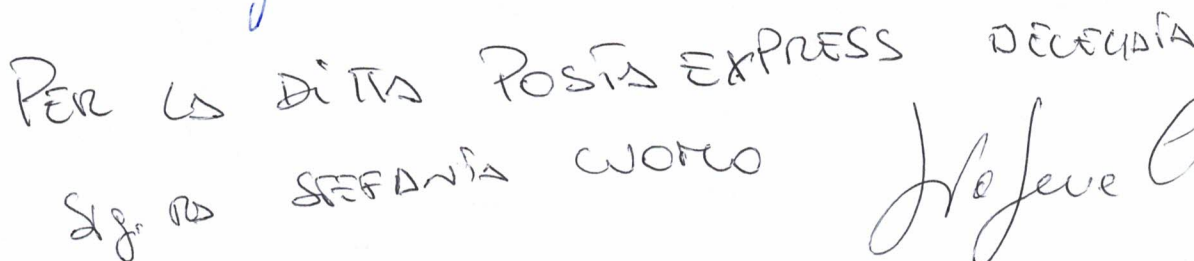 PER LA DITTA POSTA EXPRESS DELEGATA
Sig.RA STEFANIA CUOMO